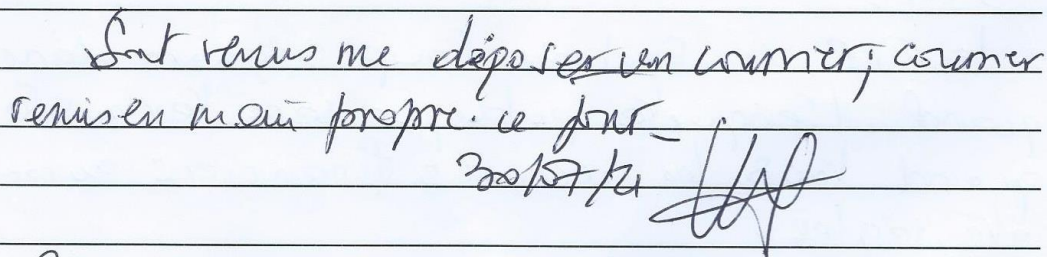 Sont venus me déposer un courrier; courrier
remis en main propre. ce jour_
30/07/21